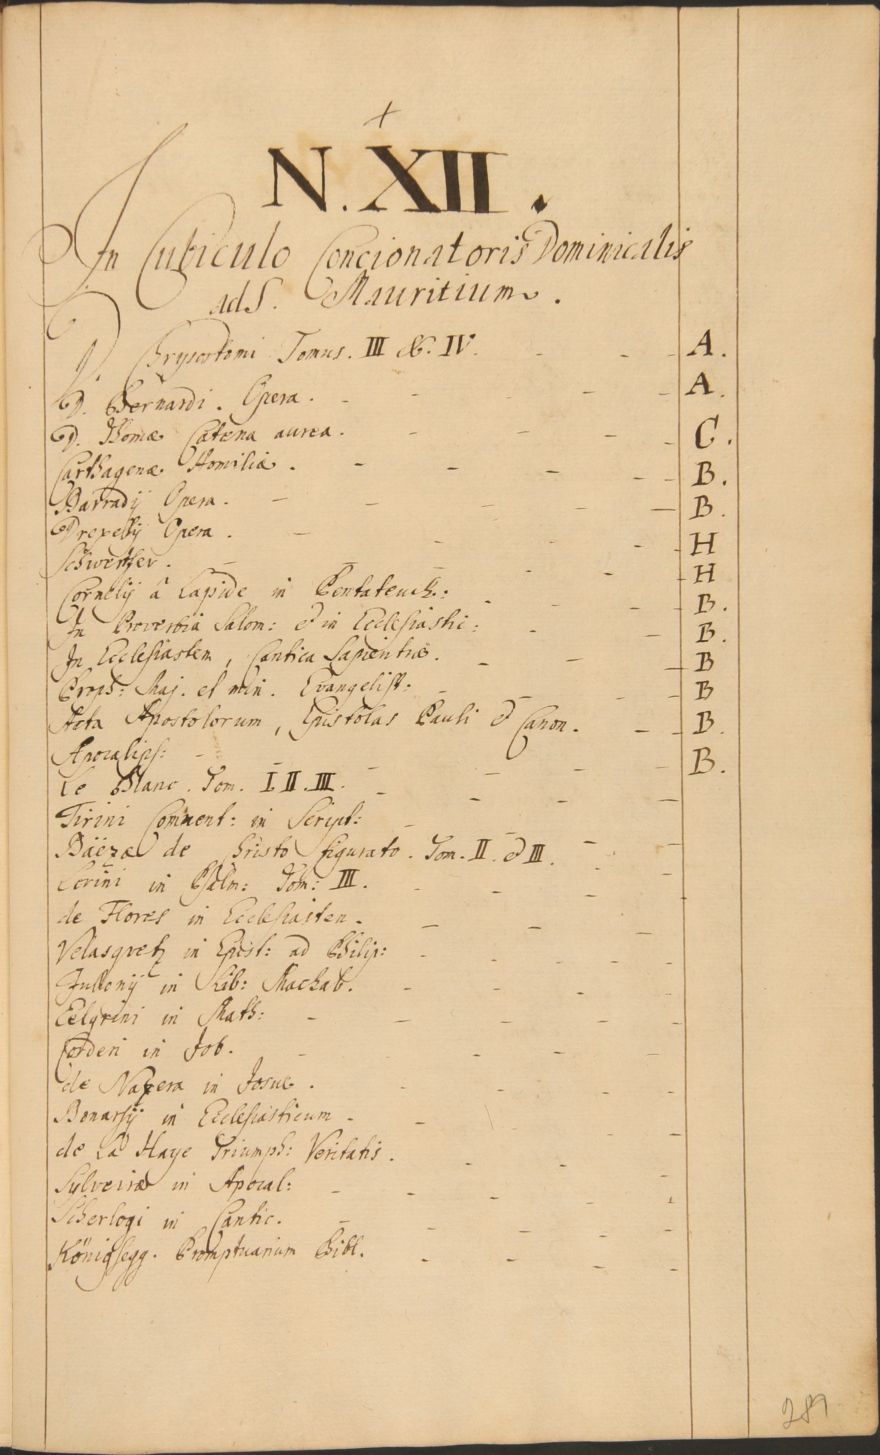 +
N. XII.
In Cubiculo Concionatoris Dominicalis
ad S. Mauritium.
D. Chrysostomi Tomus. III & IV. - - - A.
D. Bernardi. Opera. - - - - A.
D. Thomæ Catena aurea. - - - - C.
Carthagenæ Homiliæ. - - - - B.
Barradij Opera. - - - - B.
Drexelij Opera. - - - - H
Schwertfer. - - - - H
Cornelij â Lapide in Pentateuch: - - - B.
In Proverbia Salom: & in Ecclesiastic: - - B.
In Ecclesiastem, Cantica Sapientiæ. - - - B
Proph: Maj. et min. Evangelist: - - - B
Acta Apostolorum, Epistolas Pauli & Canon. - - B.
Apocalips: - - - - B.
Le Blanc. Tom. I. II. III. - - - -
Tirini Comment: in Script: - - -
Bäëzæ de Christo figurato. Tom. II. & III. - -
Lorini in Psalm: Tom: III. - - - -
de Flores in Ecclesiasten. - - -
Velasquetz in Epist: ad Philip: - - - -
in Lib: Machab. - - -
in Math: - - - - -
Corderi in Job. - - - -
de Naxera in Josue. - - -
Bonarsij in Ecclesiasticum - - -
de La Haye Triumph: Veritatis. - - -
Sylveiræ in Apocal: - - - - -
Scherlogi in Cantic. - - - - -
Königsegg. Promptuarium Bibl. - - - -
289